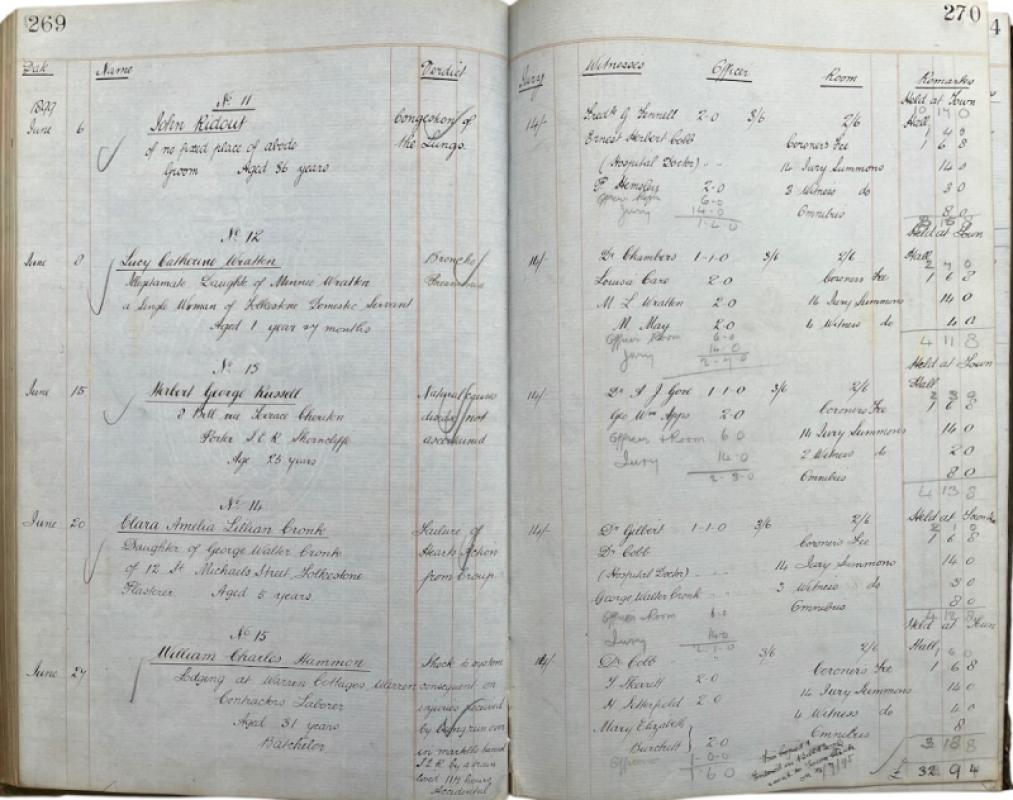 269
Date Name Verdict
1899
No 11
June 6 John Ridout Congestion of
of no fixed place of abode the Lungs.
Groom Aged 36 years
No 12
June 8 Lucy Catherine Wratten Broncho
Illegitimate Daught of Minnie Wratten Pneumonia
a Single Woman of Folkestone Domestic Servant
Aged 1 year & 7 months
No 13
June 15 Herbert George Russell Natural Causes
8 Bell Terrace Cheriton disease not
Porter S.E.R. Shorncliffe ascertained
Age 23 years
No 14
June 20 Clara Amelia Lillian Cronk Failure of
Daughter of George Walter Cronk Hearts Action
of 12 St Michaels Street Folkestone from Croup
Plasterer Aged 5 years
No 15
June 27 William Charles Hammon Shock to system
Lodging at Warren Cottages, Warren consequent on
Contractors Laborer injuries received
Aged 31 years by being run over
Batchelor in
S.E.R. by a train
lived 11½ hours
Accidental
270
Jury Witnesses Officer Room Remarks
Held at Town
14/- Fredk G Fennell 2-0 3/6 2/6 Hall
Ernest Herbert Cobb Coroners Fee 1 6 8
(Hospital Doctor) 14 Jury Summons 14 0
Hemsley 2-0 3 Witness do 3 0
6-0
Jury 14-0 Omnibus 8 0
1-4-0
Held at Town
14/- Dr Chambers 1-1-0 3/6 2/6 Hall
Louisa Care 2-0 Coroners Fee 1 6 8
M. L Wratten 2-0 14 Jury Summons 14 0
M. May 2-0 4 Witness do 4 0
Officer Room 6-0
Jury 14-0 4 11 8
2-7-0
Held at Town
14/- Dr A J Gore 1-1-0 3/6 2/6 Hall
Geo Wm Apps 2-0 Coroners Fee 1 6 8
Officer & Room 6 0 14 Jury Summons 14 0
Jury 14-0 2 Witness do 2 0
2-3-0 Omnibus 8 0
4 13 8
Held at Town
14/- Dr Gilbert 1-1-0 3/6 2/6
Dr Cobb Coroners Fee 1 6 8
(Hospital Doctor) 14 Jury Summons 14 0
George Walter Cronk 3 Witness do 3 0
Officer Room 6-0 Omnibus 8 0
4 12 8
Jury 14-0
Held at Town
14/- Dr Cobb 3/6 2/6 Hall
T Sherrett 2-0 Coroners Fee 1 6 8
H Setterfield 2-0 14 Jury Summons 14 0
Mary Elizabeth 4 Witness do 4 0
Burchett } 2-0 Omnibus 8
Officer 1-0-0 3 18 8
1-6-0 £ 32 9 4